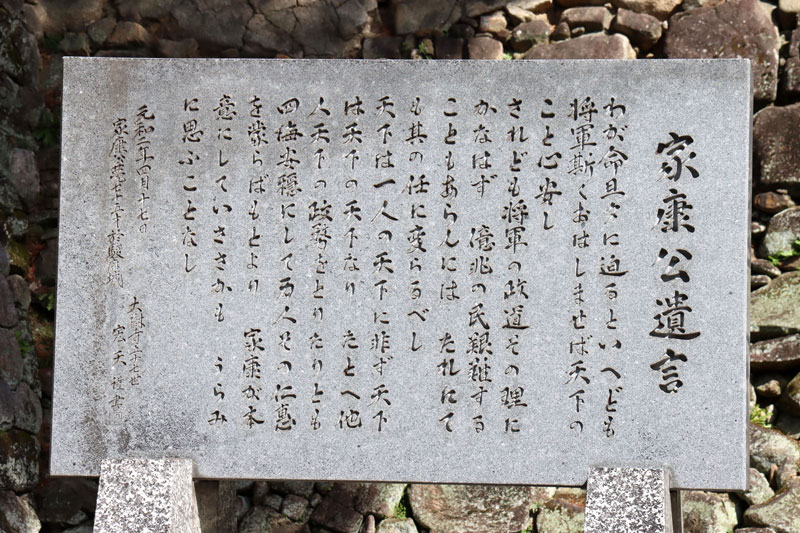 家康公遺言
わが命旦夕に迫るといへども
将軍斯くおはしませば天下の
こと心安し
されども将軍の政道その理に
かなはず 億兆の民艱難する
こともあらんには たれにて
も其の任に変らるべし
天下は一人の天下に非ず天下
は天下の天下なり たとへ他
人天下の政務をとりたりとも
四海安穏にして万人その仁恵
を蒙らばもとより 家康が本
意にしていささかも うらみ
に思ふことなし
元和二年四月十七日
家康公薨七十五才 於駿府城
大樹寺 十七世